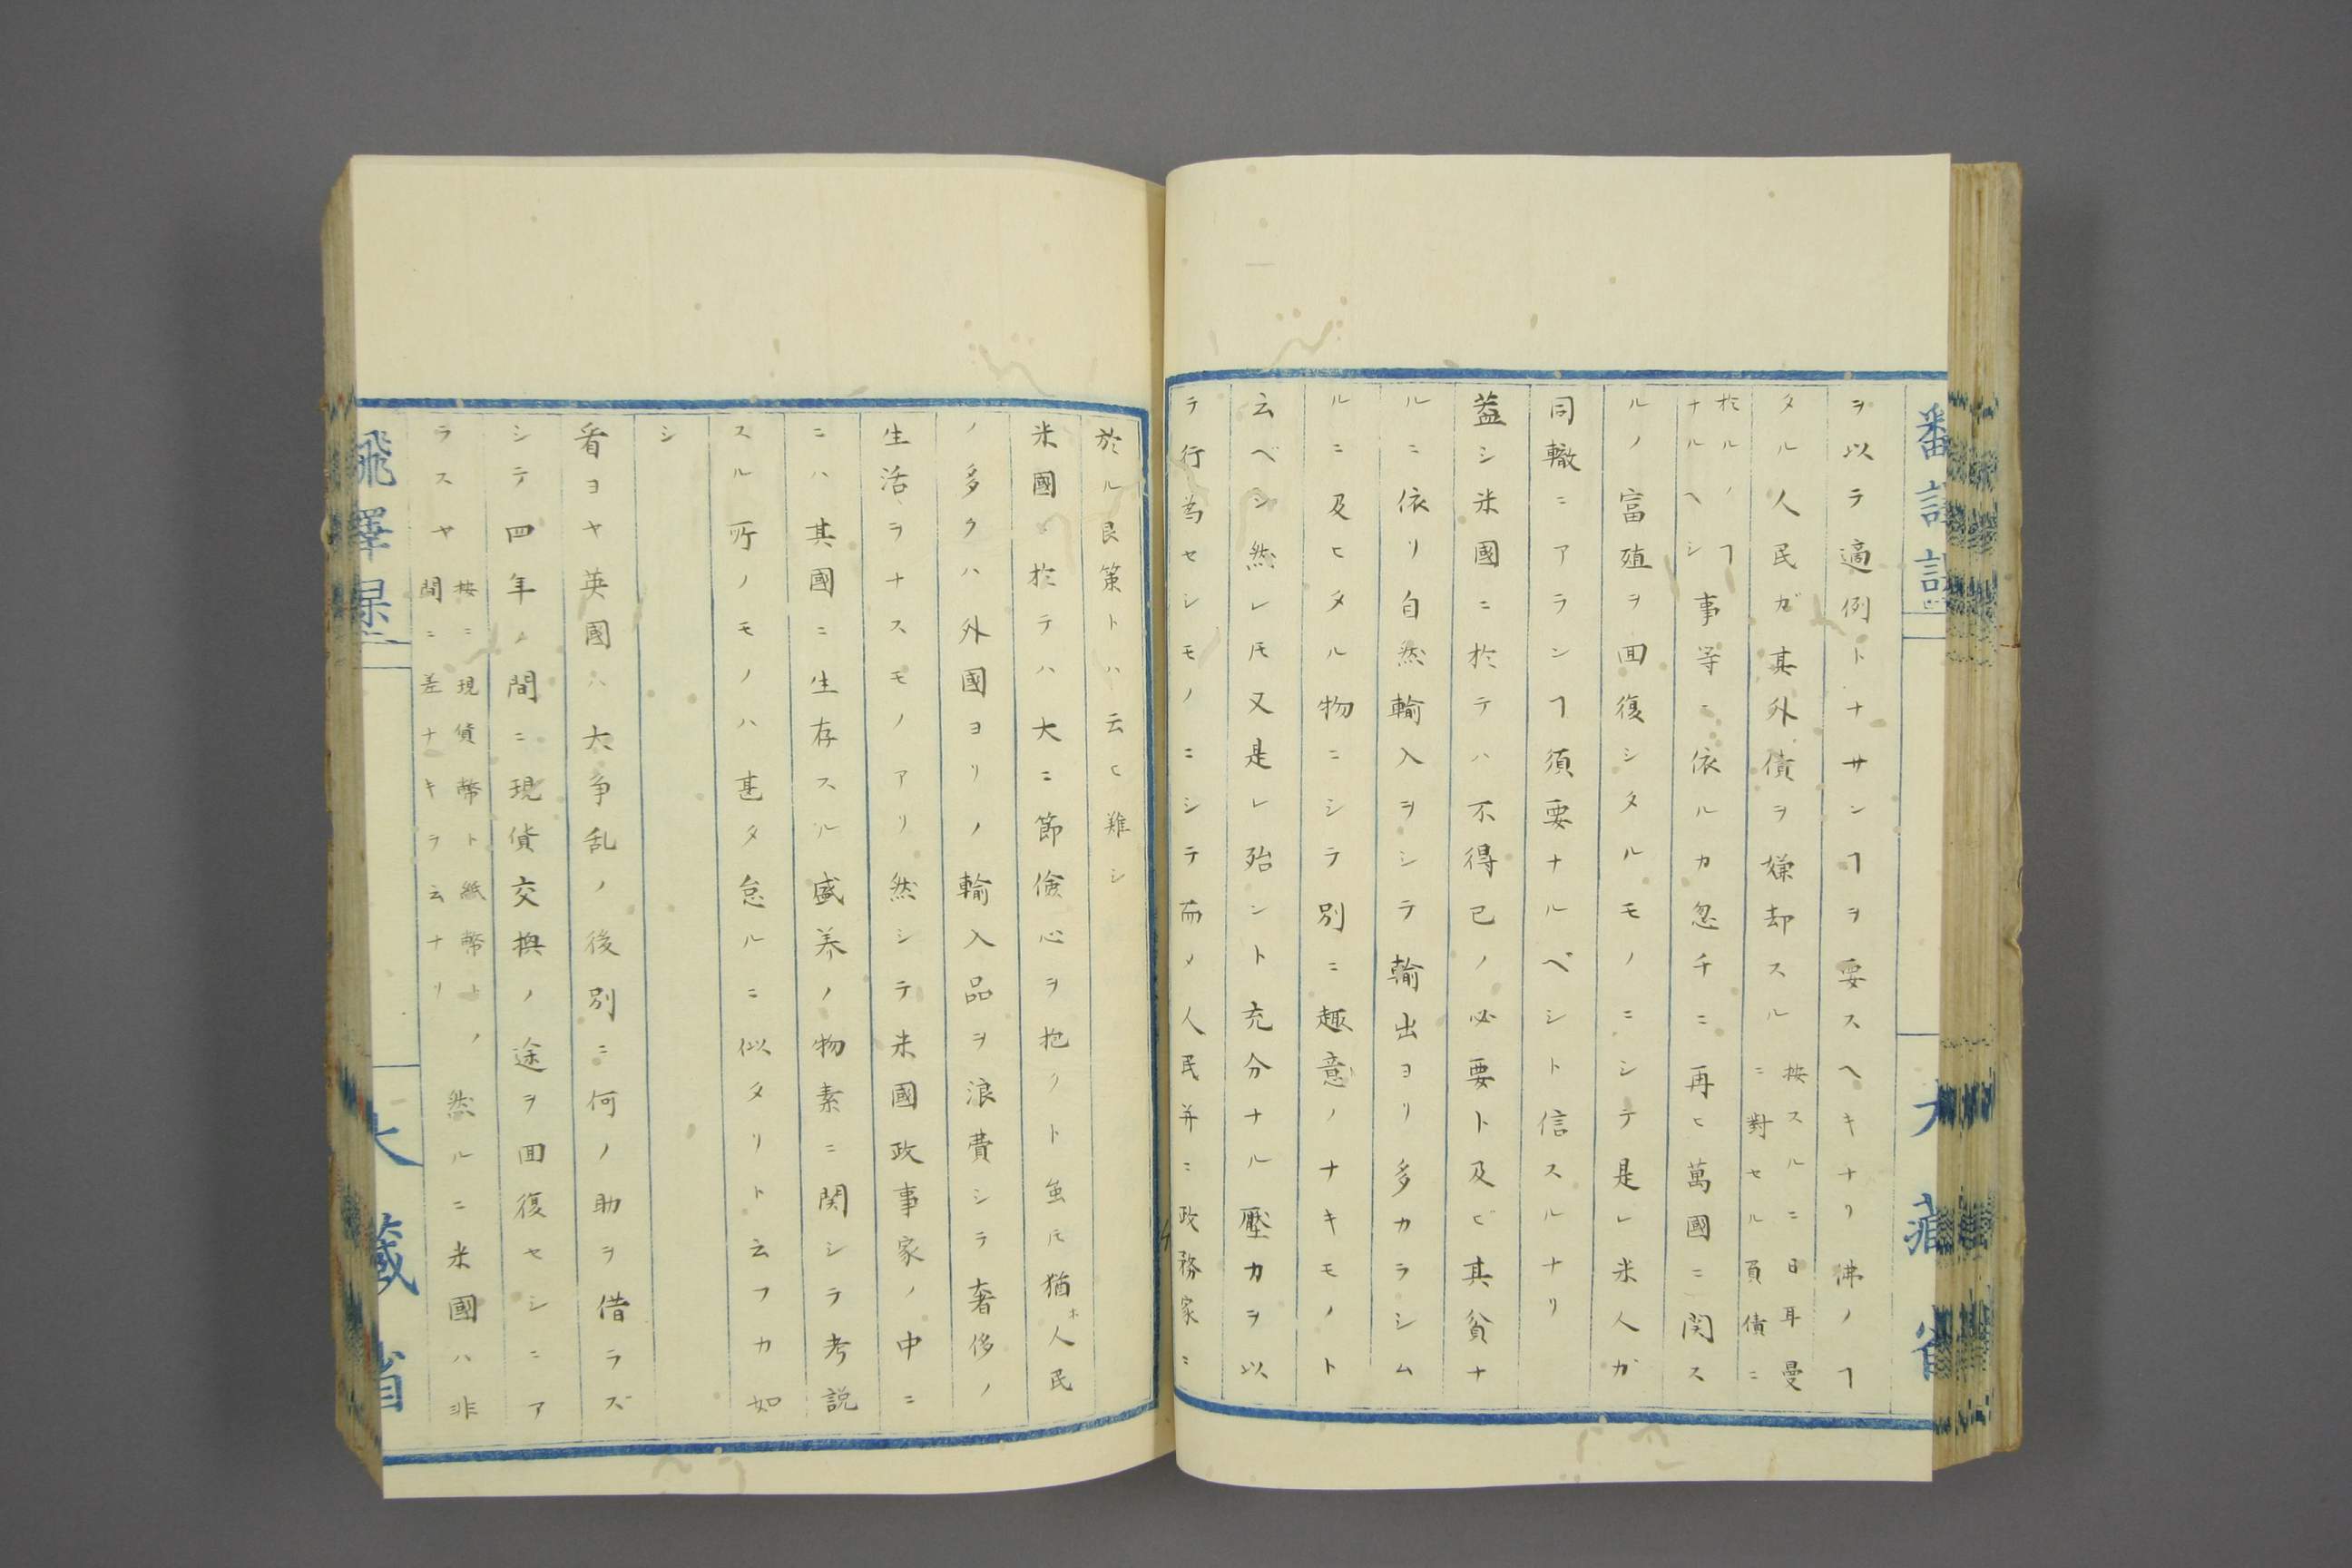 ヲ以テ適例トナサンヿヲ要スヘキナリ沸ノヿ
タル人民ガ其外債ヲ嫌却スル
按スルニ日耳曼
ニ對セル頁債ニ
於ルノヿ
ナルヘシ
事等ニ依ルカ忽チニ再ヒ萬國ニ関ス
ルノ富殖ヲ囬復シタルモノニシテ是レ米人ガ
同轍ニアランヿ須要ナルベシト信スルナリ
蓋シ米國ニ於テハ不得已ノ必要ト及ビ其貧ナ
ルニ依リ自然輸入ヲシテ輸出ヨリ多カラシム
ルニ及ヒタル物ニシテ別ニ趣意ノナキモノト
云ベシ然レ𪜈又是レ殆ント充分ナル壓力ヲ以
テ行為セシモノニシテ而メ人民并ニ政務家ニ
於ル良策トハ云ヒ難シ
米國ニ於テハ大ニ節儉心ヲ抱クト虽𪜈猶ホ人民
ノ多クハ外國ヨリノ輸入品ヲ浪費シテ奢侈ノ
生活ヲナスモノアリ然シテ米國政事家ノ中ニ
ニハ其國ニ生存スル盛養ノ物素ニ関シテ考説
スル所ノモノハ甚タ怠ルニ似タリト云フカ如
シ
看ヨヤ英國ハ大争乱ノ後別ニ何ノ助ヲ借ラズ
シテ四年ノ間ニ現貨交換ノ途ヲ囬復セシニア
ラスヤ
按ニ現貨幣ト紙幣トノ
間ニ差ナキヲ云ナリ
然ルニ米國ハ非
大藏省